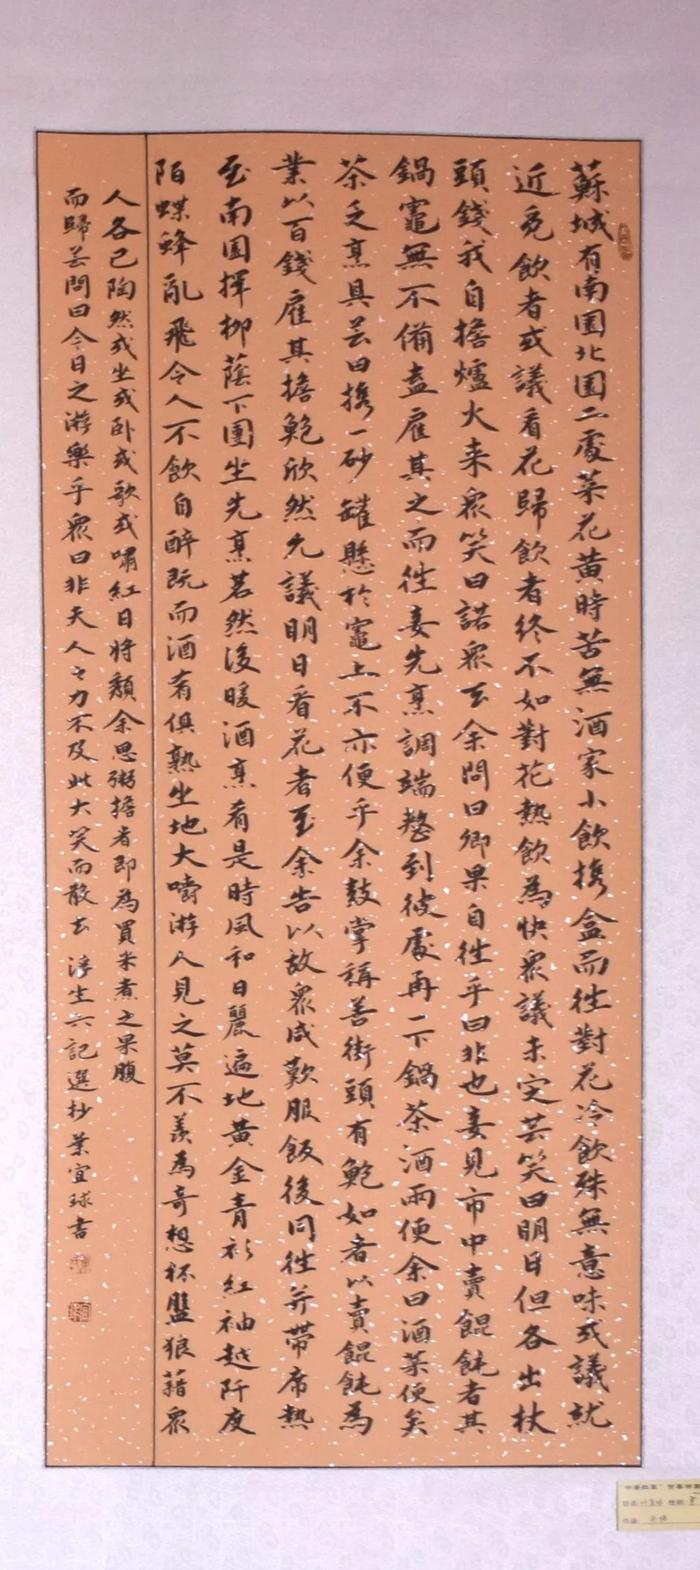 蘇城有南園北園二處菜花黃時苦無酒家小飲攜盒而往對花冷飲殊無意味或議就
近覓飲者或議看花歸飲者終不如對花熱飲為快眾議未定芸笑曰明日但各出杖
頭錢我自擔爐火来眾笑曰諾眾去余問曰卿果自往乎曰非也妾見市中賣餛飩者其
鍋竈無不備盍雇其之而往妾先烹調端整到彼處再一下鍋茶酒兩便余曰酒菜便矣
茶乏烹具芸曰攜一砂罐懸於竈上不亦便乎余鼓掌稱善街頭有鮑如者以賣餛飩為
業以百錢雇其擔鮑欣然允議明日看花者至余告以故眾咸歎服飯後同往并帶席熱
至南園擇柳蔭下團坐先烹茗然後暖酒烹肴是時風和日麗遍地黃金青衫紅袖越阡度
陌蝶蜂亂飛令人不飲自醉既而酒肴俱熟坐地大嚼游人見之莫不羨為奇想杯盤狼藉眾
人各已陶然或坐或卧或歌或嘯紅日將頹余思粥擔者即為買米煮之果腹
而歸芸問曰今日之游樂乎眾曰非夫人之力不及此大笑而散去 浮生六記選抄 葉宜球書